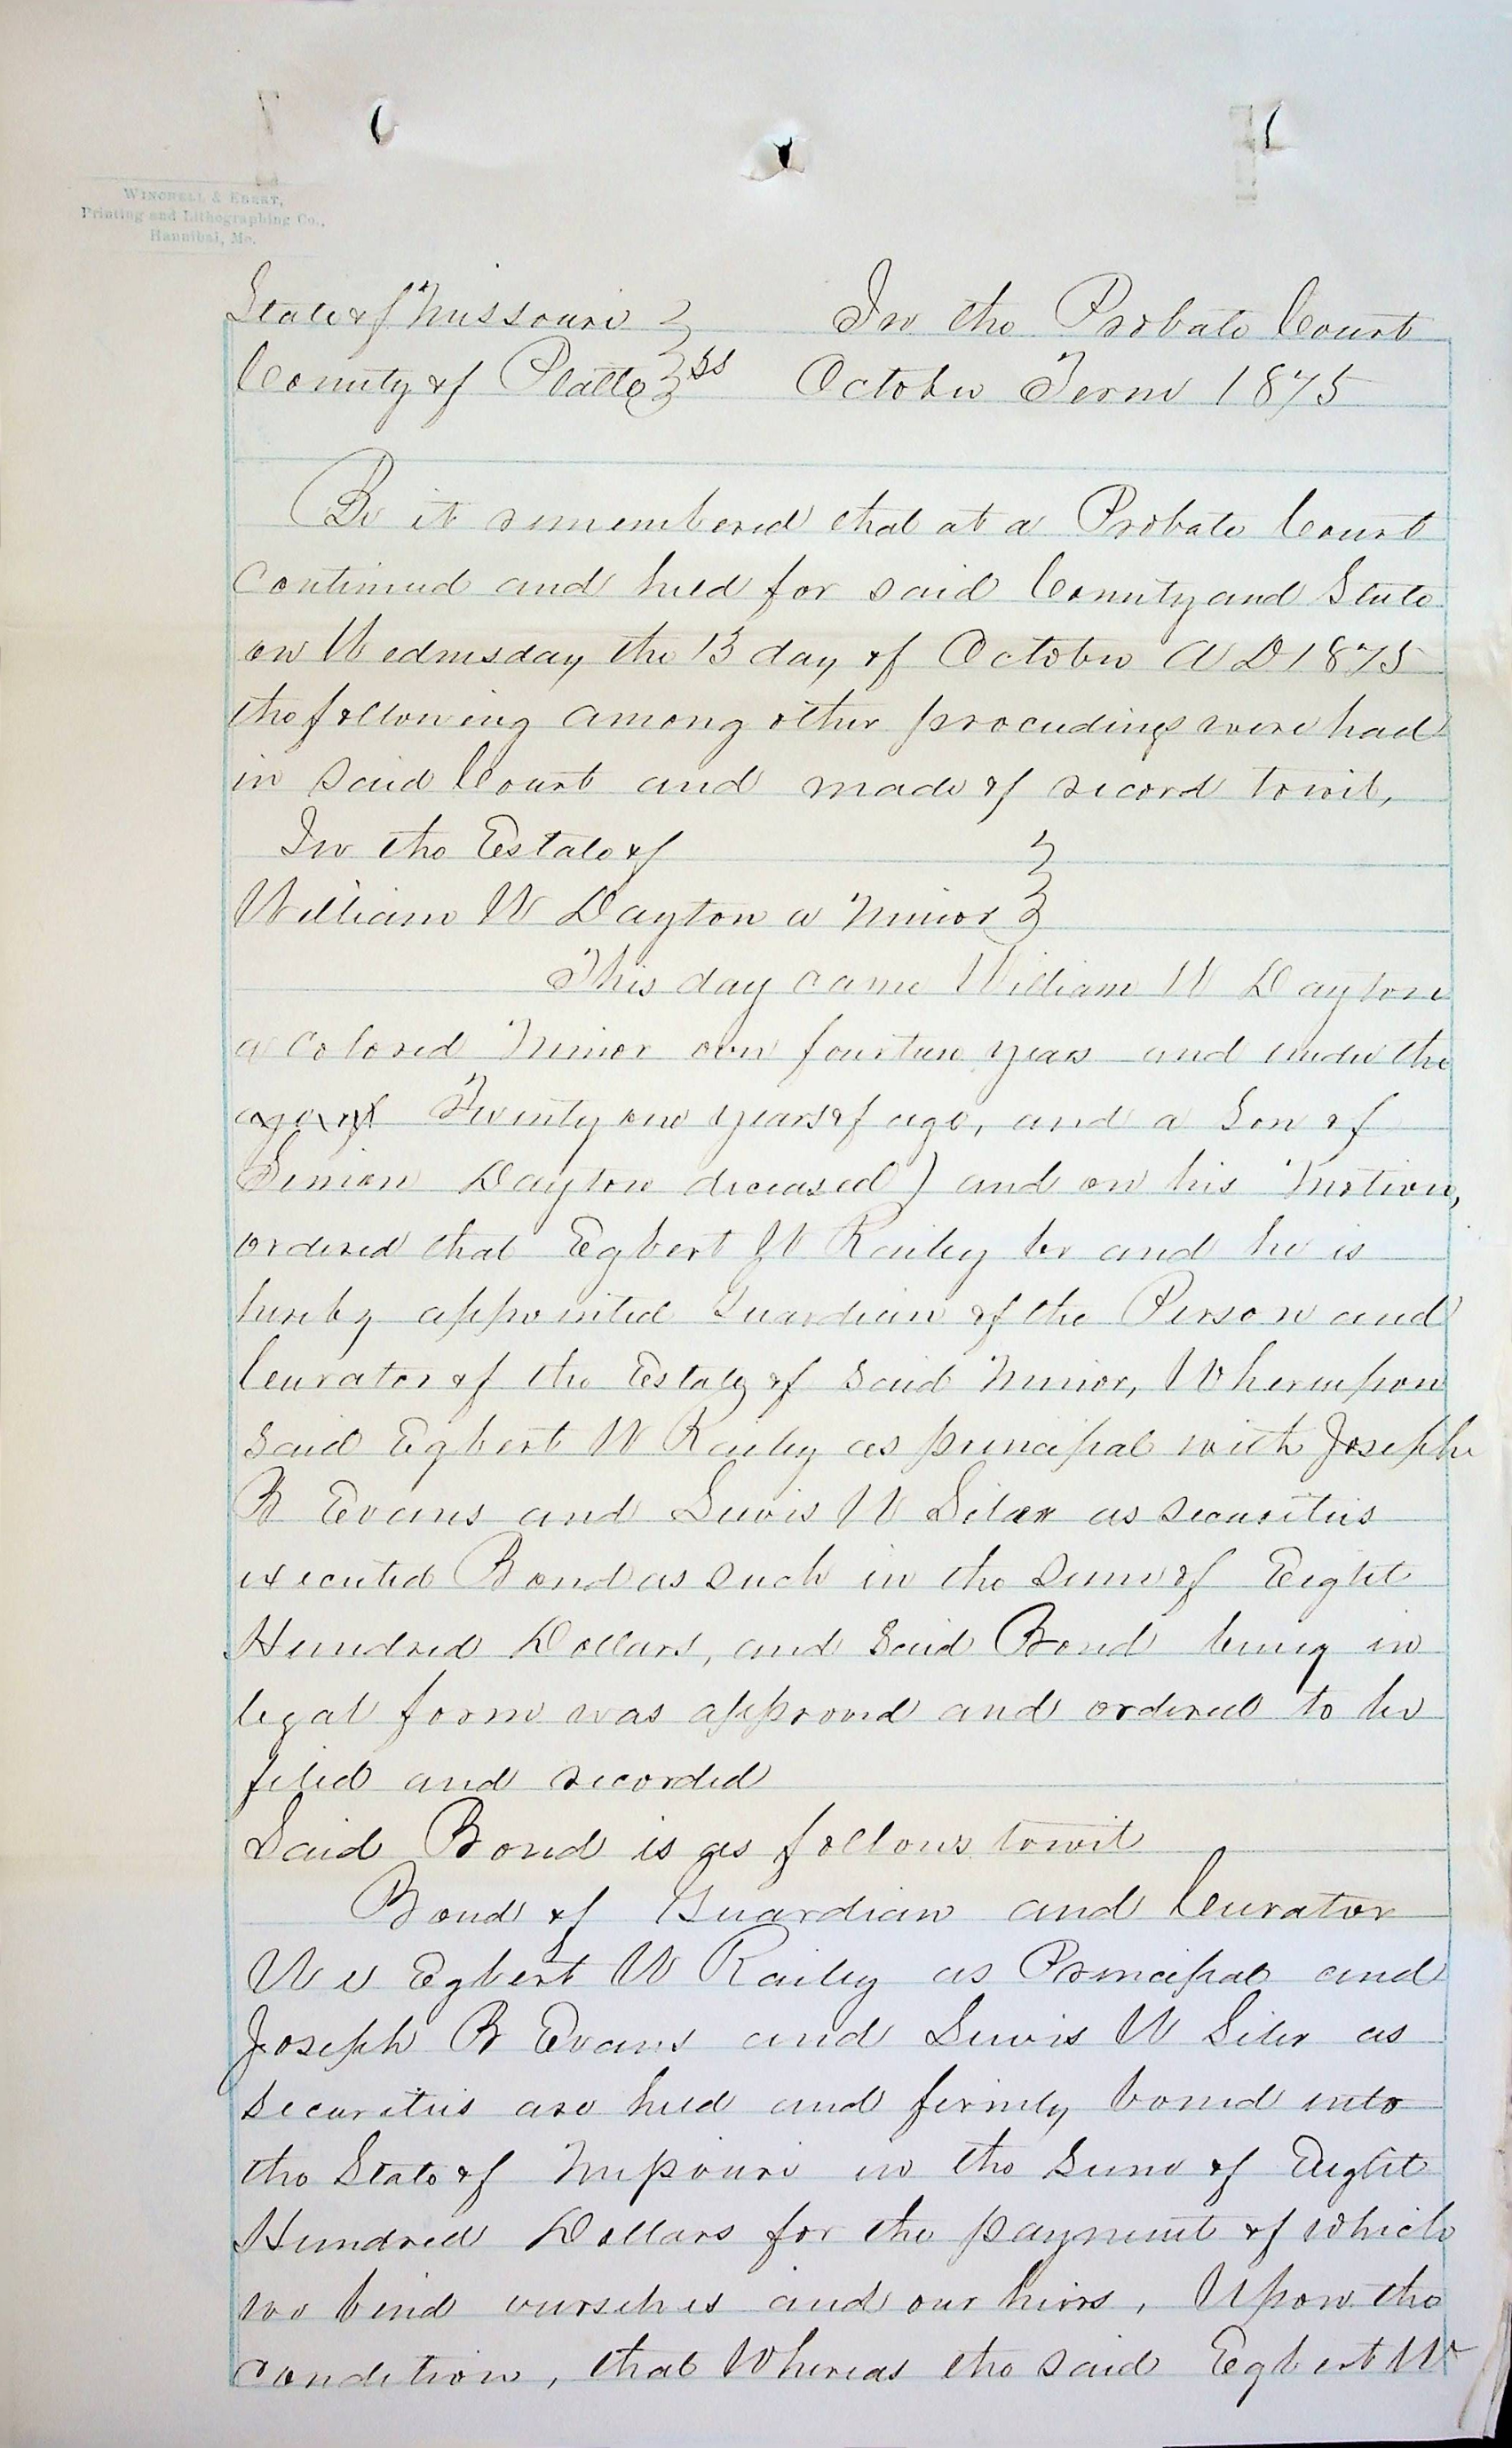 WINCHELL & EBERT,
Printing and Lithographing Co.,
Hannibal, Mo.
State of Missouri } In the Probate Court
County of Platte } ss October Term 1875
Be it remembered that at a Probate Court
Continued and held for said County and State
on Wednesday the 13 day of October A D 1875
the following among other proceedings were had
in said Court and made of record towit,
In the Estate of }
William W Dayton a Minor }
This day came William W Dayton
a Colored Minor over fourteen years and under the
age of Twenty one years of age, and a Son of
Simion Dayton deceased) and on his Motion,
ordered that Egbert W Railey be and he is
hereby appointed Guardian of the Person and
Curator of the Estate of said Minor, Whereupon
said Egbert W Railey as principal with Joseph
B Evans and Lewis W Siler as securities
executed Bond as such in the sum of Eight
Hundred Dollars, and said Bond being in
legal form was approved and ordered to be
filed and recorded
Said Bond is as follows towit
Bond of Guardian and Curator
We Egbert W Railey as Principal and
Joseph B Evans and Lewis W Siler as
securities are held and firmly bond into
the State of Missouri in the Sum of Eight
Hundred Dollars for the payment of which
we bind ourselves and our heirs, Upon the
condition, that Whereas the said Egbert W